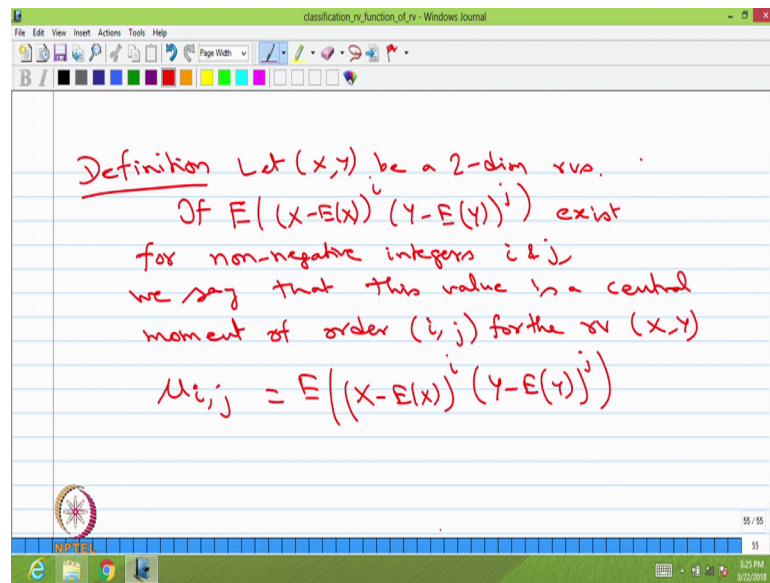 classification_rv_function_of_rv - Windows Journal
File Edit View Insert Actions Tools Help
Page Width
B I
Definition Let (X,Y) be a 2-dim rvs.
If E((X-E(X))^i (Y-E(Y))^j) exist
for non-negative integers i & j,
we say that this value is a central
moment of order (i, j) for the rv (X,Y)
μ_{i,j} = E((X-E(X))^i (Y-E(Y))^j)
NPTEL
55 / 55
55
3:25 PM
3/22/2018